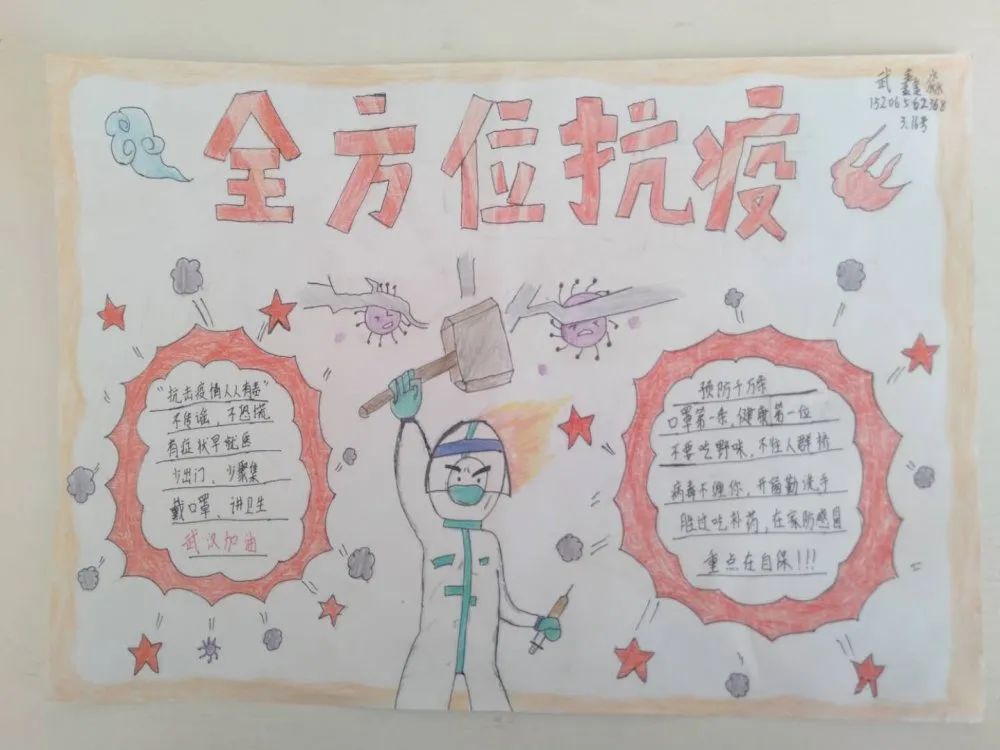 全方位抗疫
武鑫淼
15206562368
3.16号
“抗击疫情人人有责”
不传谣，不恐慌
有症状早就医
少出门，少聚集
戴口罩、讲卫生
武汉加油
预防千万条
口罩第一条，健康第一位
不要吃野味，不往人群挤
病毒不缠你，开窗勤洗手
胜过吃补药，在家防感冒
重点在自保！!!